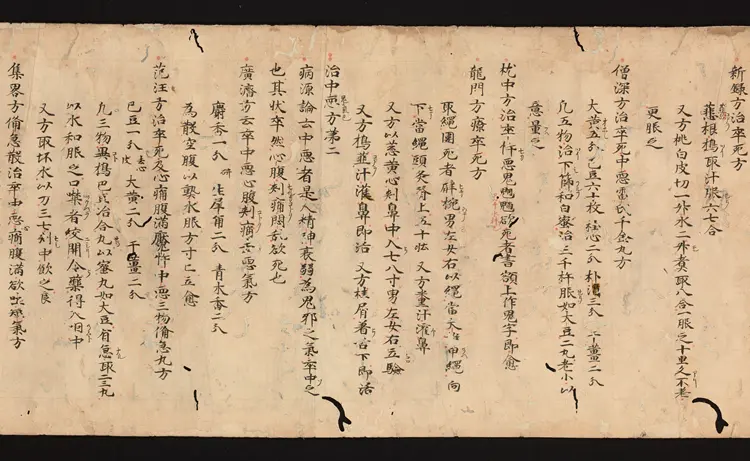 新録方治卒死方
韮根搗取汁服六七合
又方桃白皮切一升水二升煮取八合一服之十里久不差
更服之
僧深方治卒死中惡雷氏千金丸方
大黄五分 巴豆六十枚 桂心二分 朴消三分 干薑二分
凡五物治下篩和白蜜治三千杵服如大豆二丸老小以
意量之
枕中方治卒忤惡鬼鴨鴨欲死者書額上作鬼字即愈
龍門方療卒死方
取繩圍死者臂椀男左女右以繩當大椎伸繩向
下當繩頭灸脊上五十壮 又方薑汁灌鼻
又方以葱黄心刾鼻中入七八寸男左女右立驗
又方搗韮汁灌鼻即活 又方桂屑着舌下即活
治中惡方第二
病源論云中惡者是人精神衰弱為鬼邪之氣卒中之
也其状卒然心腹刾痛悶乱欲死也
廣濟方云卒中惡心腹刾痛去惡氣方
麝香一分 研 生犀角二分 青木香二分
為散空腹以熟水服方寸匕立愈
范汪方治卒死及心痛腹満魘忤中惡三物備急丸方
巴豆一分 去心皮 大黄二分 干薑二分
凡三物異搗巴豆冶合丸以蜜丸如大豆有急取二三丸
以水和服之口噤者絞開令藥得入咽中
又方取坏水以刀三七刾中飲之良
集略方備急散治卒中惡心痛腹満欲吐短氣方